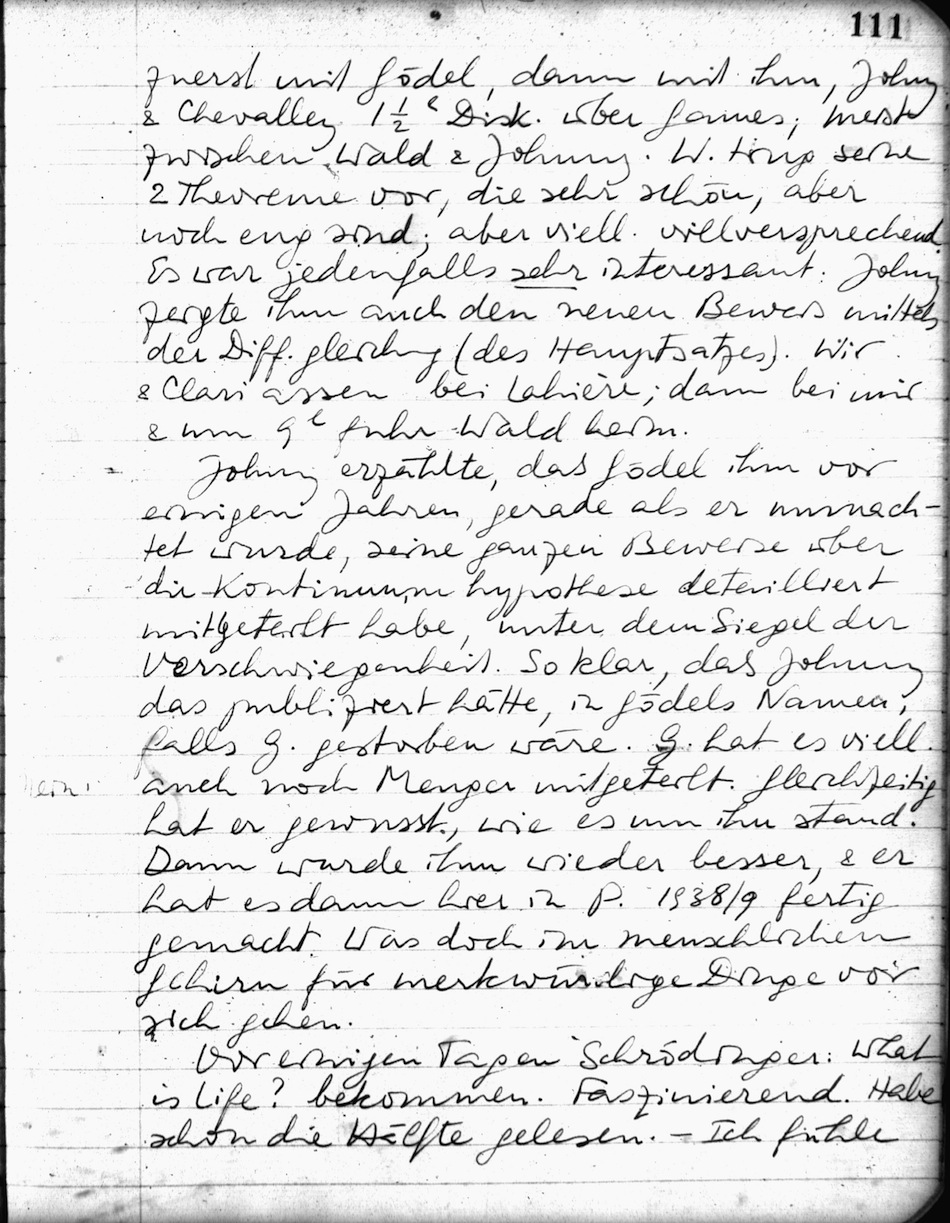 111
zuerst mit Gödel, dann mit ihm, Johny
& Chevalley 1½ h Disk. über Games; meist
zwischen Wald & Johnny. W. trug seine
2 Theoreme vor, die sehr schön, aber
noch eng sind; aber viell. vielversprechend.
Es war jedenfalls sehr interessant. Johny
zeigte ihm auch den neuen Beweis mittels
der Diff.gleichg (des Hauptsatzes). Wir
& Clari assen bei Lahière; dann bei mir
& um 9 h fuhr Wald heim.
Johny erzählte, das Gödel ihm vor
einigen Jahren, gerade als er umnach-
tet wurde, seine ganzen Beweise über
die Kontinuum hypothese detailliert
mitgeteilt habe, unter dem Siegel der
Verschwiegenheit. So klar, das Johnny
das publiziert hätte, in Gödels Namen,
falls G. gestorben wäre. G. hat es viell.
auch noch Menger mitgeteilt. Gleichzeitig
hat er gewusst, wie es um ihn stand.
Dann wurde ihm wieder besser, & er
hat es dann hier in P. 1938/9 fertig
gemacht. Was doch im menschlichen
Gehirn für merkwürdige Dinge vor
sich gehen.
Vor einigen Tagen Schrödinger: What
is Life? bekommen. Faszinierend. Habe
schon die Hälfte gelesen. – Ich fühle